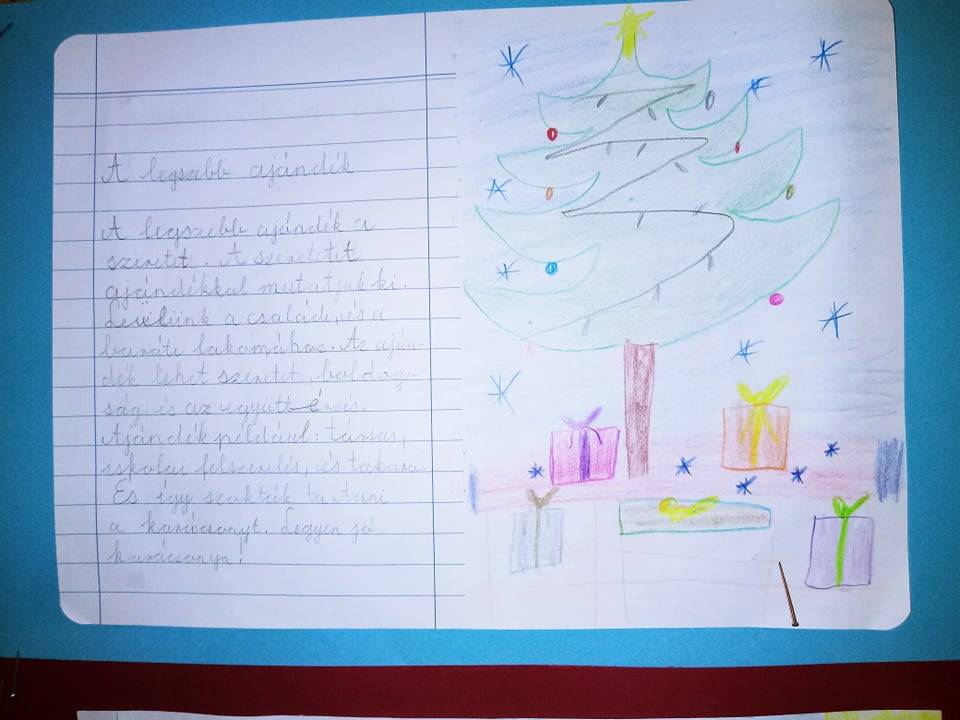 A legszebb ajándék
A legszebb ajándék a
szeretet. A szeretetet
ajándékkal mutatjuk ki.
Leülünk a családi, és a
baráti lakomához. Az aján-
dék lehet szeretet, boldog-
ság, és az együtt érzés.
Ajándék például: társas,
iskolai felszerelés, és takaró.
És így szokták tartani
a karácsonyt. Legyen jó
karácsonya!